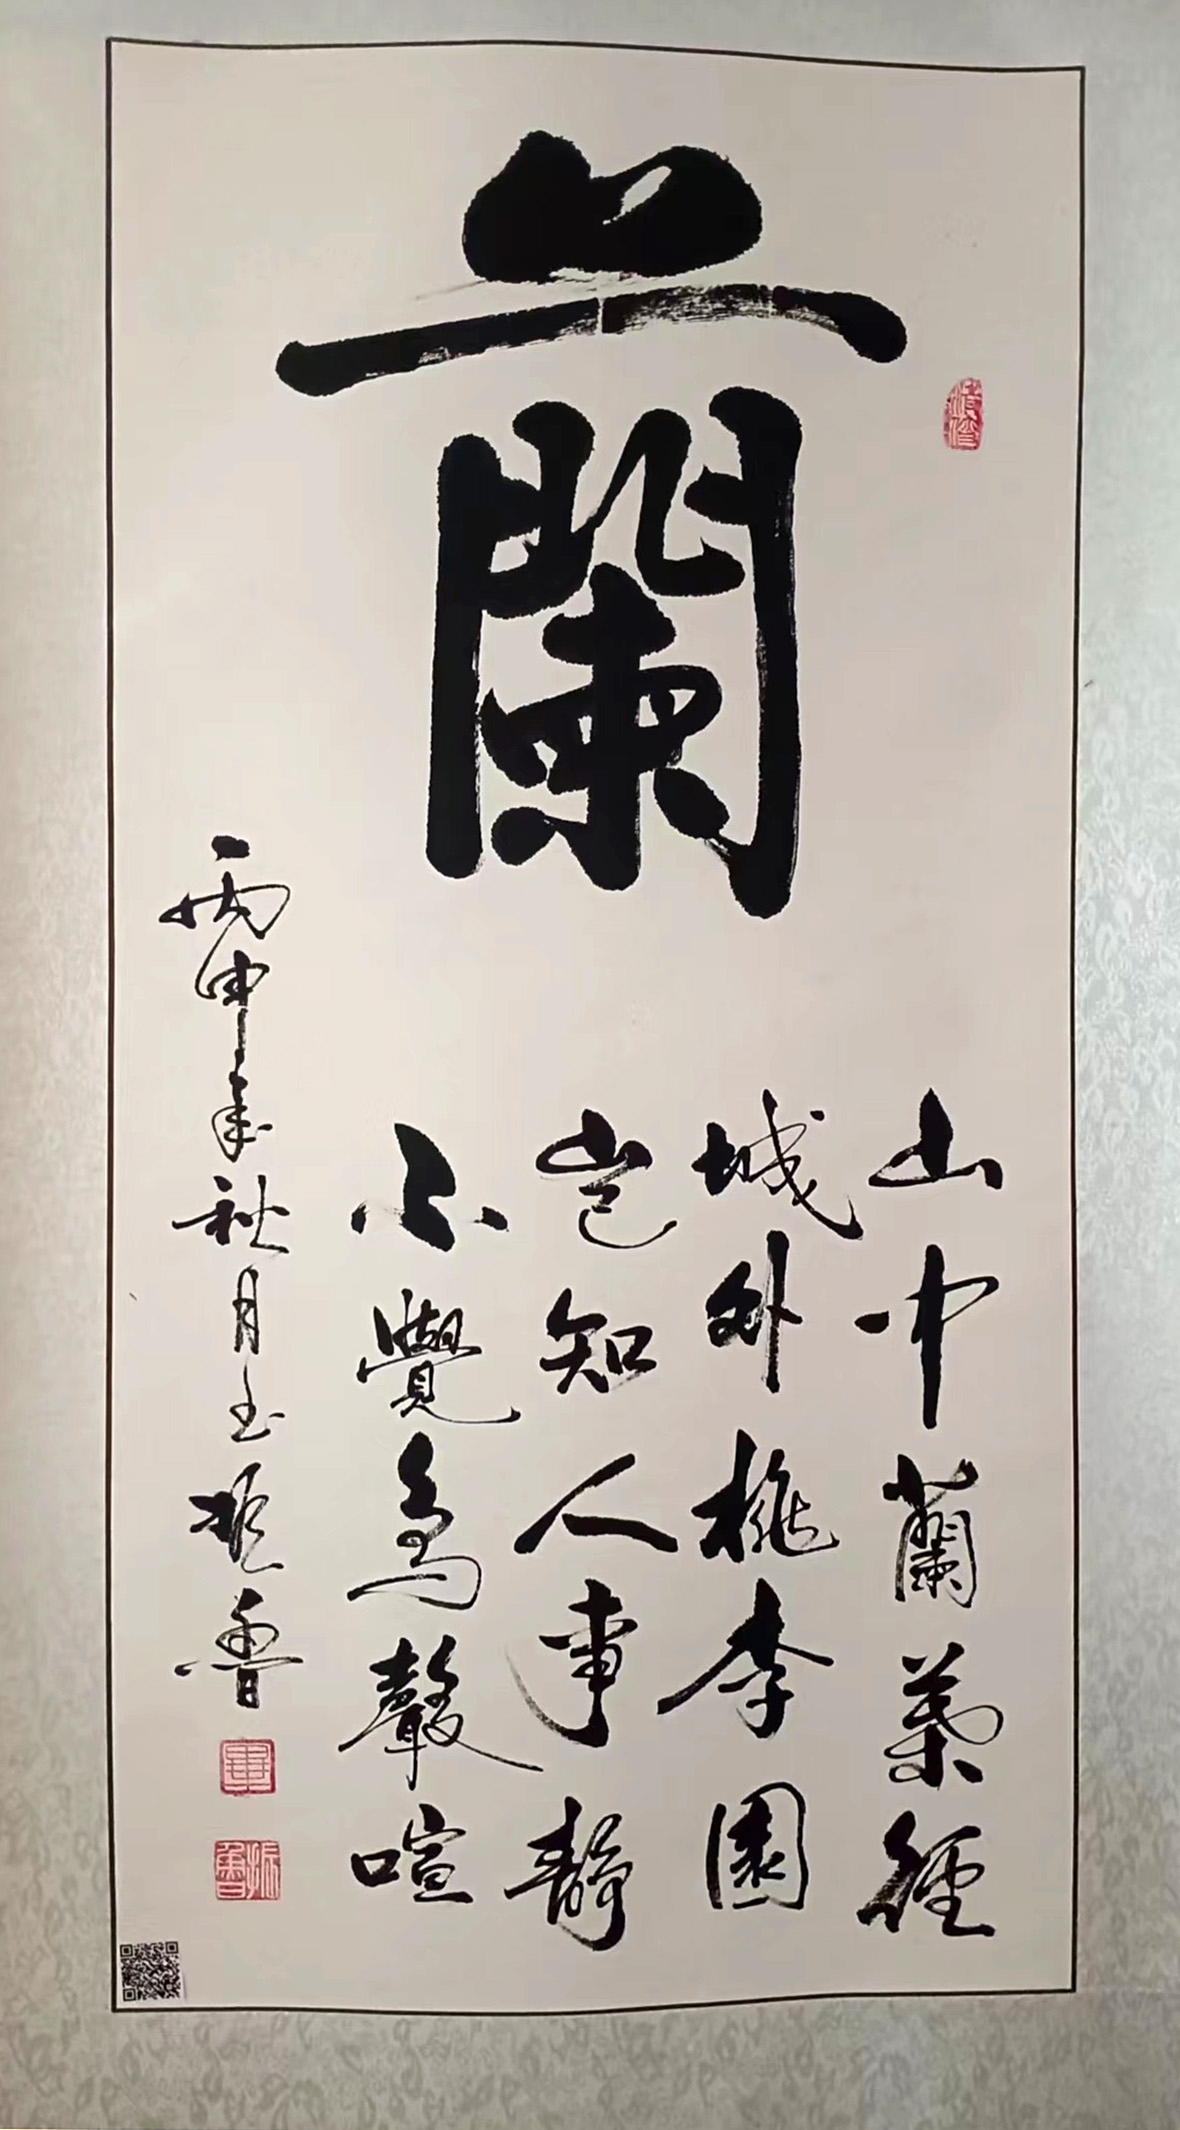 蘭
山中蘭葉徑
城外桃李園
豈知人事靜
不覺鳥聲喧
丙申年秋月玉振魯